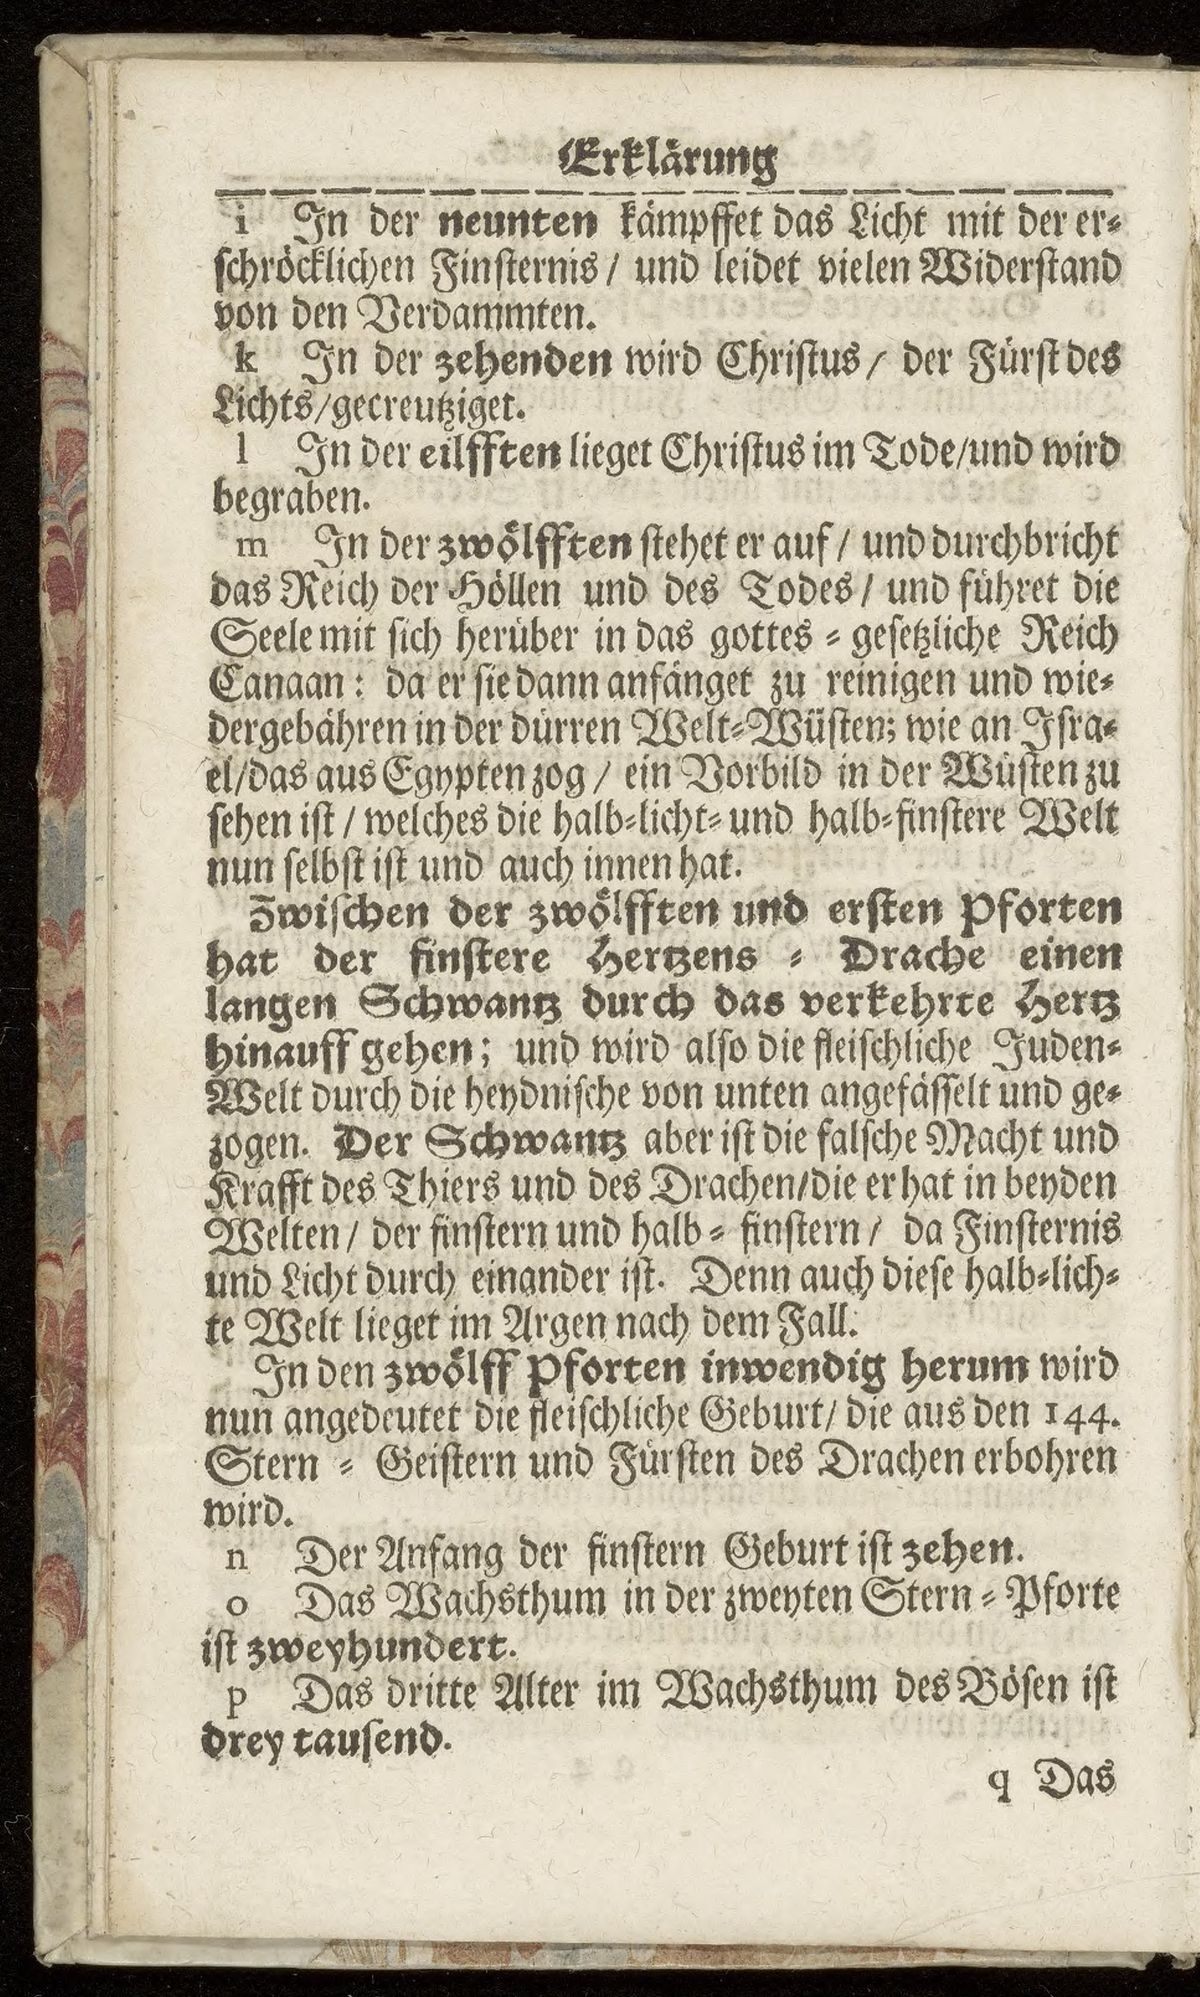 Erklärung
i In der neunten kämpffet das Licht mit der er-
schröcklichen Finsternis / und leidet vielen Widerstand
von den Verdammten.
k In der zehenden wird Christus / der Fürst des
Lichts/gecreutziget.
l In der eilfften lieget Christus im Tode/und wird
begraben.
m In der zwölfften stehet er auf / und durchbricht
das Reich der Höllen und des Todes / und führet die
Seele mit sich herüber in das gottes - gesetzliche Reich
Canaan: da er sie dann anfänget zu reinigen und wie-
dergebähren in der dürren Welt-Wüsten; wie an Isra-
el/das aus Egypten zog / ein Vorbild in der Wüsten zu
sehen ist / welches die halb-licht- und halb-finstere Welt
nun selbst ist und auch innen hat.
Zwischen der zwölfften und ersten Pforten
hat der finstere Hertzens - Drache einen
langen Schwantz durch das verkehrte Hertz
hinauff gehen; und wird also die fleischliche Juden-
Welt durch die heydnische von unten angefässelt und ge-
zogen. Der Schwantz aber ist die falsche Macht und
Krafft des Thiers und des Drachen/die er hat in beyden
Welten / der finstern und halb - finstern / da Finsternis
und Licht durch einander ist. Denn auch diese halb-lich-
te Welt lieget im Argen nach dem Fall.
In den zwölff Pforten inwendig herum wird
nun angedeutet die fleischliche Geburt/ die aus den 144.
Stern - Geistern und Fürsten des Drachen erbohren
wird.
n Der Anfang der finstern Geburt ist zehen.
o Das Wachsthum in der zweyten Stern - Pforte
ist zweyhundert.
p Das dritte Alter im Wachsthum des Bösen ist
drey tausend.
q Das